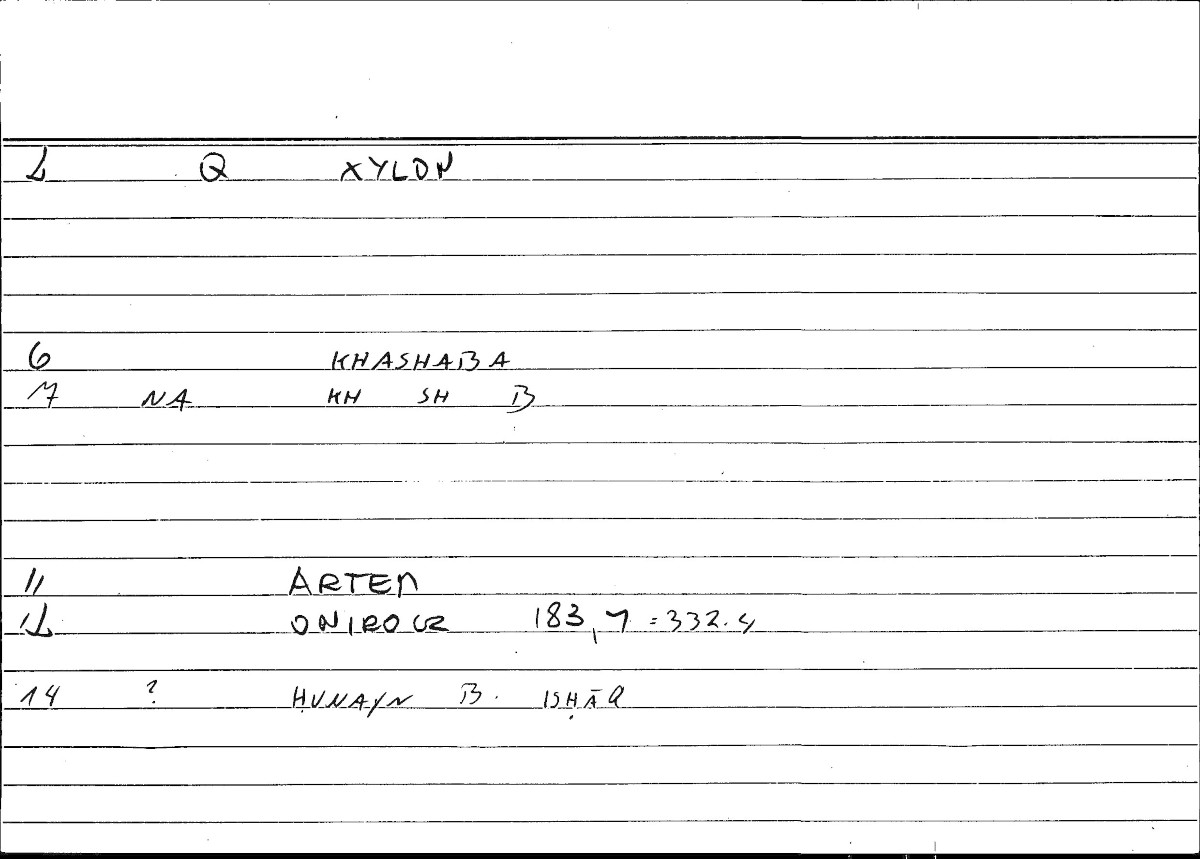 1 Q XYLON
6 KHASHABA
7 NA KH SH B
11 ARTEM
12 ONIROCR 183, 7 = 332.4
14 ? ḤUNAYN B. ISḤĀQ